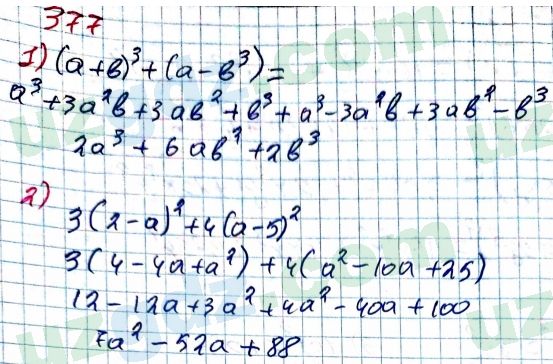 377
1) (a+b)³+(a-b³)=
a³+3a²b+3ab²+b³+a³-3a²b+3ab²-b³
2a³+6ab²+2b³
2)
3(2-a)²+4(a-5)²
3(4-4a+a²)+4(a²-10a+25)
12-12a+3a²+4a²-40a+100
7a²-52a+88